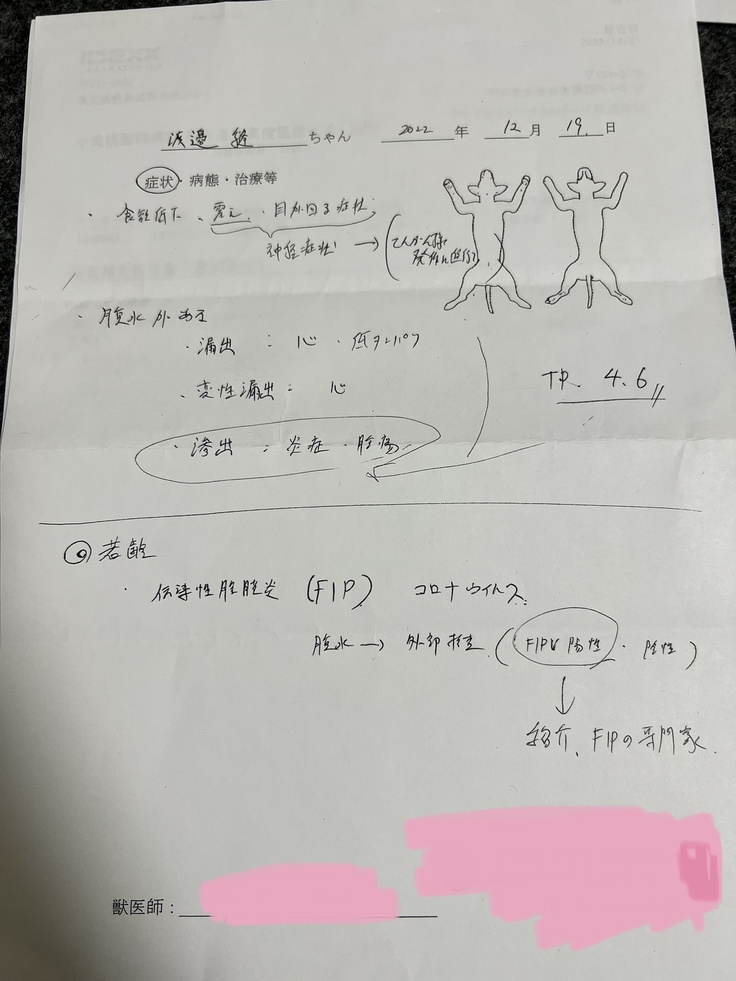 渡邉 ちゃん 2022 年 12 月 19. 日
症状・病態・治療等
・食欲低下、震え、・目が回る症状
神経症状 → (てんかん様 発作に近い
・腹水がある
・漏出 : 心・低タンパク
・変性漏出 : 心
TP. 4.6
・滲出 : 炎症・腫瘍
◎若齢
・伝染性腹膜炎 (FIP) コロナウイルス
腹水 → 外部検査 (FIPV 陽性・陰性)
↓
紹介、FIPの専門家
獣医師：